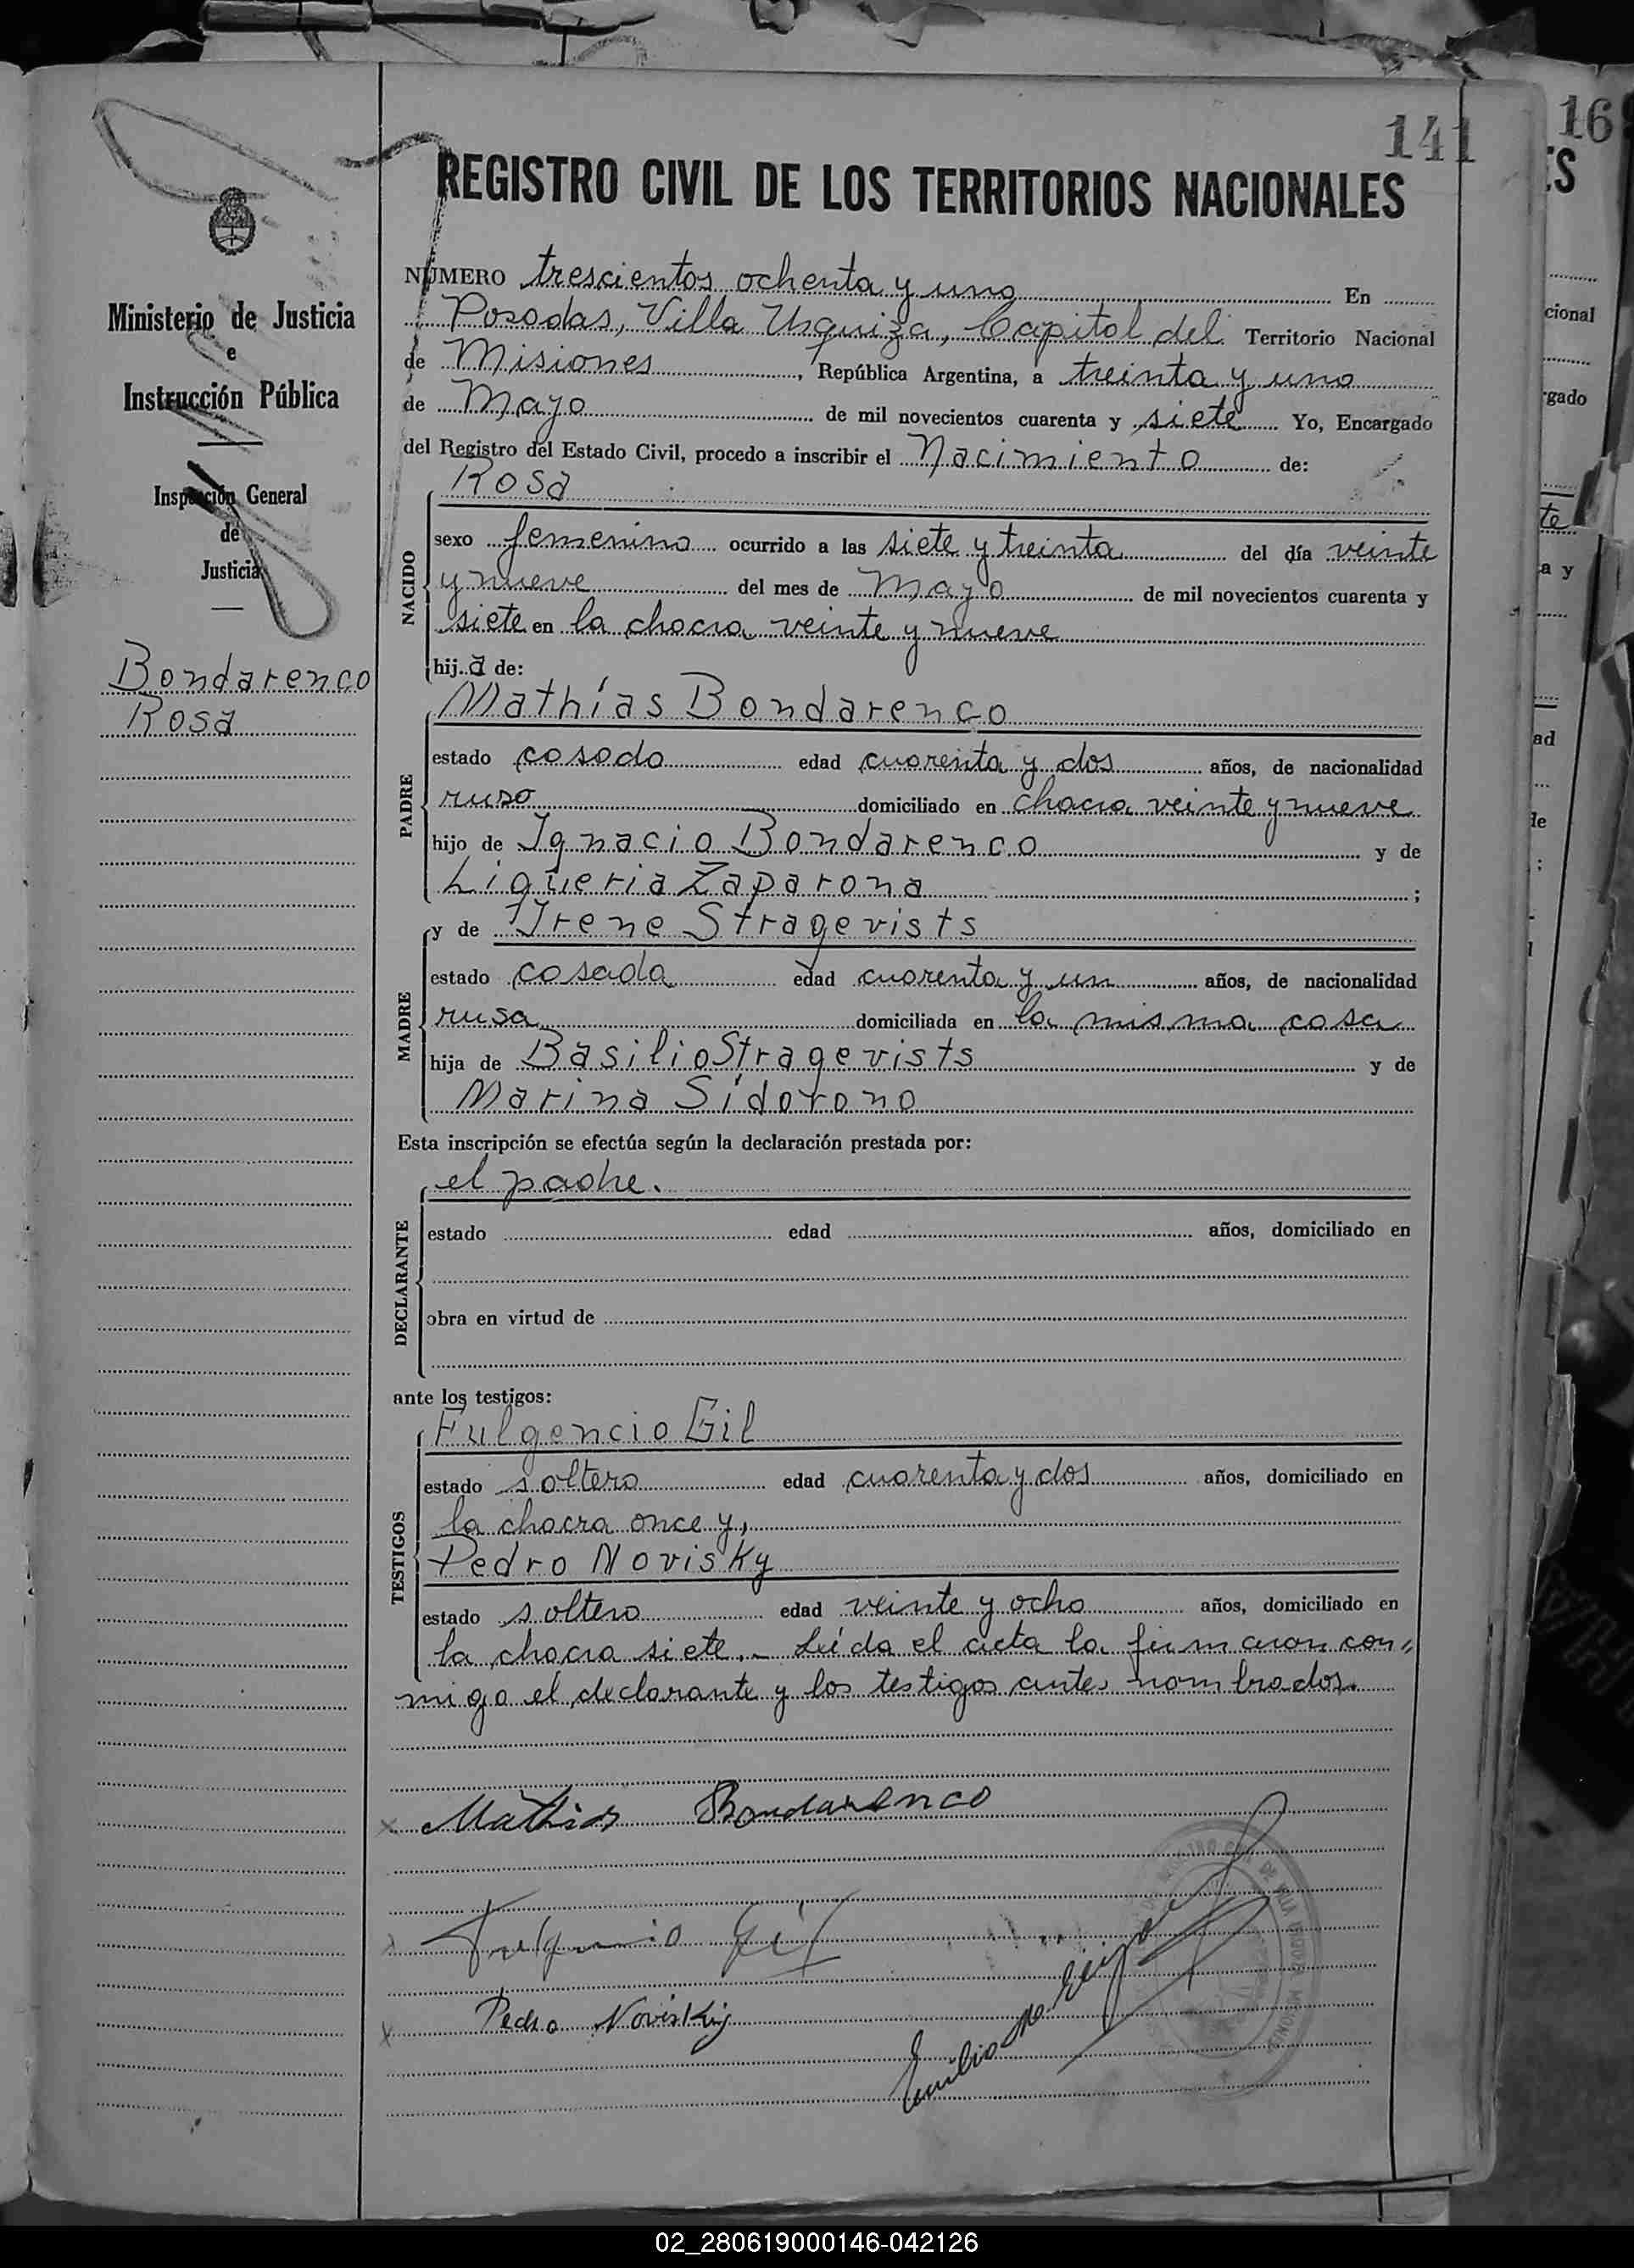 141
16
REGISTRO CIVIL DE LOS TERRITORIOS NACIONALES
ES
Ministerio de Justicia
e
Instrucción Pública
Inspección General
de
Justicia
Bondarenco
Rosa
NÚMERO trescientos ochenta y uno En
Posadas, Villa Urquiza, Capital del Territorio Nacional
de Misiones, República Argentina, a treinta y uno
de Mayo de mil novecientos cuarenta y siete Yo, Encargado
del Registro del Estado Civil, procedo a inscribir el Nacimiento de:
NACIDO
Rosa
sexo femenino ocurrido a las siete y treinta del día veinte
y nueve del mes de Mayo de mil novecientos cuarenta y
siete en la chacra veinte y nueve
hija de:
PADRE
Mathías Bondarenco
estado casado edad cuarenta y dos años, de nacionalidad
ruso domiciliado en chacra veinte y nueve
hijo de Ignacio Bondarenco y de
Ligüeria Zaparona ;
MADRE
y de Irene Stragevists
estado casada edad cuarenta y un años, de nacionalidad
rusa domiciliada en la misma casa
hija de Basilio Stragevists y de
Marina Sidorono
Esta inscripción se efectúa según la declaración prestada por:
DECLARANTE
el padre.
estado edad años, domiciliado en
obra en virtud de
ante los testigos:
TESTIGOS
Fulgencio Gil
estado soltero edad cuarenta y dos años, domiciliado en
la chacra once y,
Pedro Novisky
estado soltero edad veinte y ocho años, domiciliado en
la chacra siete.- Leída el acta la firmaron con"
migo el declarante y los testigos antes nombrados.
x Mathias Bondarenco
x Fulgencio Gil
x Pedro Novisky
Emilio
cional
rgado
te
a y
ad
de
;
02_280619000146-042126